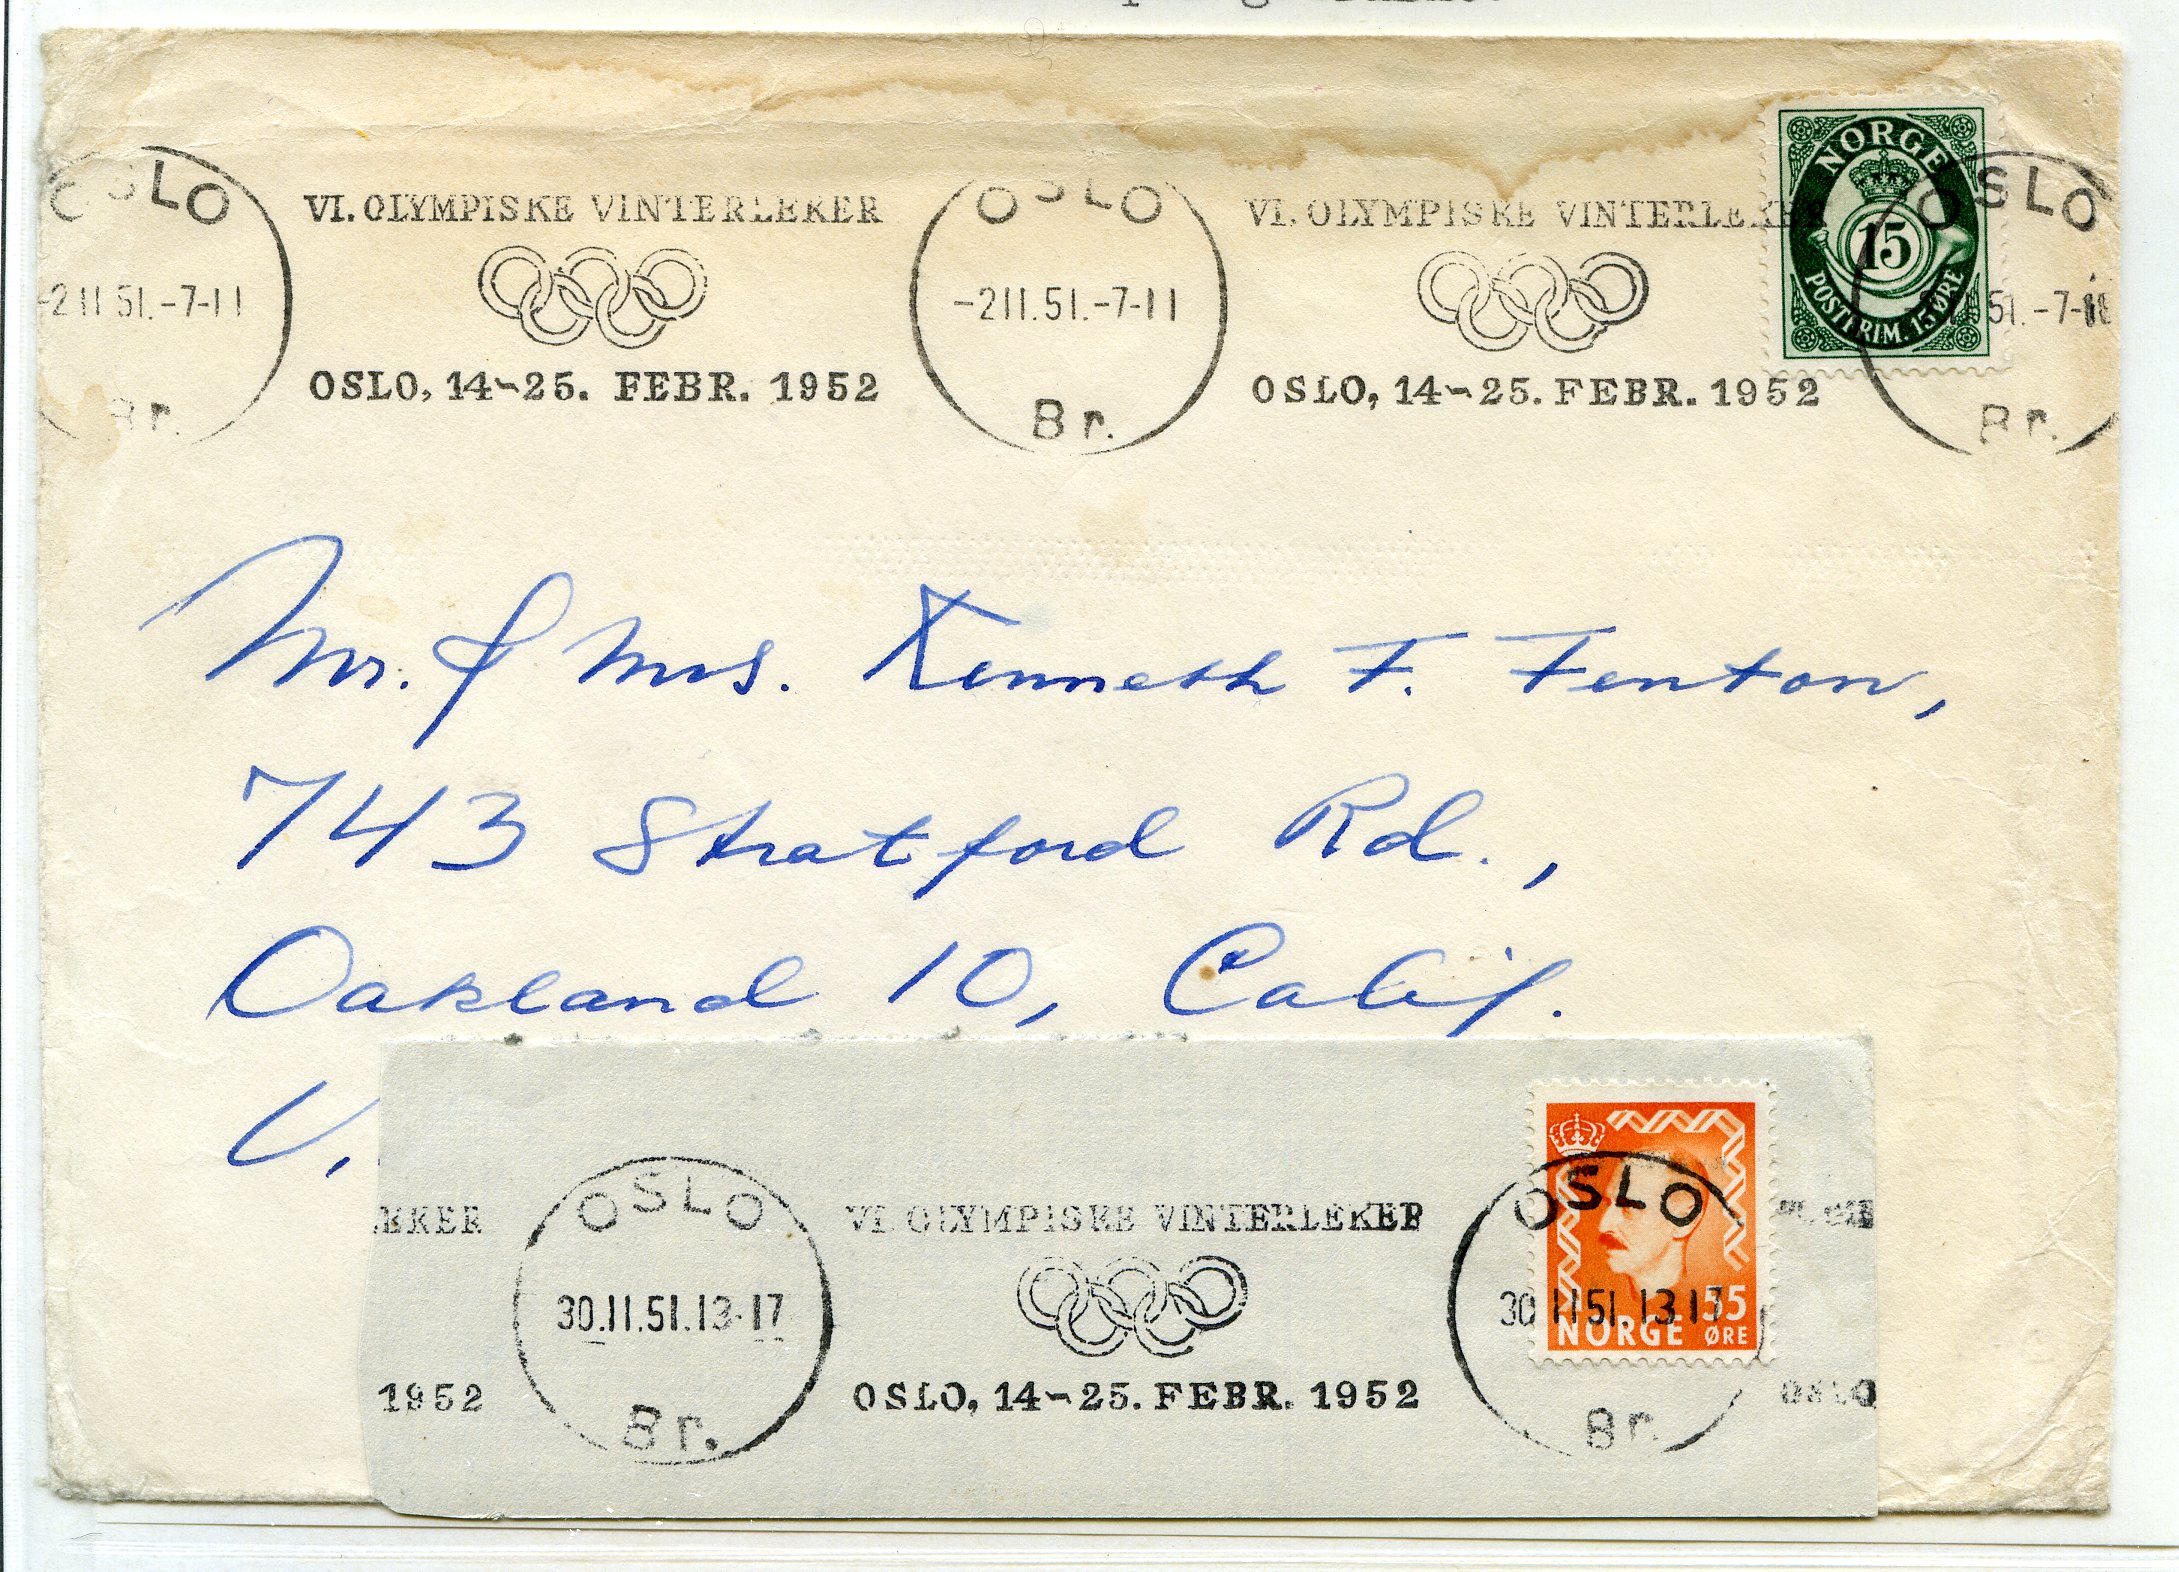 OSLO
-2 11 51.-7-11
Br.
VI. OLYMPISKE VINTERLEKER
OSLO, 14-25. FEBR. 1952
OSLO
-211.51.-7-11
Br.
VI. OLYMPISKE VINTERLEKER
OSLO, 14-25. FEBR. 1952
NORGE
15
POSTFRIM. 15 ØRE
OSLO
51.-7-11
Br.
Mr. & Mrs. Kenneth F. Fenton,
743 Stratford Rd.,
Oakland 10, Calif.
U.
EKER
1952
OSLO
30.11.51.13-17
Br.
VI. OLYMPISKE VINTERLEKER
OSLO, 14-25. FEBR. 1952
OSLO
30 11 51. 13 17
Br.
55
NORGE ØRE
OSLO